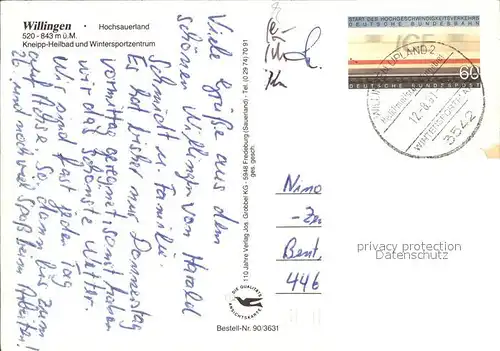 Willingen • Hochsauerland
520 - 843 m ü.M.
Kneipp-Heilbad und Wintersportzentrum
Viele Grüße aus dem
schönen Willingen von Harald
Schmidt u. Familie.
Es hat bisher nur Donnerstag
Vormittag geregnet, sonst haben
wir das schönste Wetter.
Wir sind fast jeden Tag
auf Achse. So, dann bis zum
26. und noch viel Spaß beim Arbeiten!
110 Jahre Verlag Jos. Grobbel KG - 5948 Fredeburg (Sauerland) - Tel. (0 29 74) 70 91
ges. gesch.
DIE QUALITÄTS
ANSICHTSKARTE
Bestell-Nr. 90/3631
START DES HOCHGESCHWINDIGKEITSVERKEHRS
DEUTSCHE BUNDESBAHN
ICE
60
DEUTSCHE BUNDESPOST
WILLINGEN, UPLAND 2
Heilklimatischer
12.-8.91
WINTERSPORTPLATZ
3542
Nino
Bent
446
privacy protection
Datenschutz